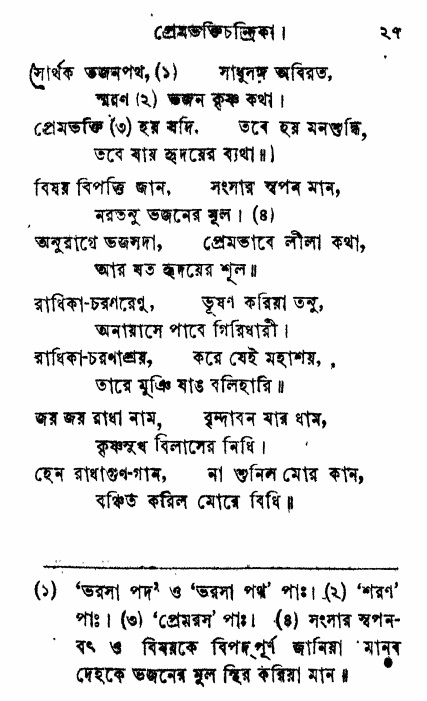 প্রেমভক্তিচন্দ্রিকা। ২৭
(সার্থক ভজনপথ, (১) সাধুসঙ্গ অবিরত,
স্মরণ (২) ভজন কৃষ্ণ কথা।
প্রেমভক্তি (৩) হয় যদি, তবে হয় মনশুদ্ধি,
তবে যায় হৃদয়ের ব্যথা॥)
বিষয় বিপত্তি জান, সংসার স্বপন মান,
নরতনু ভজনের মূল। (৪)
অনুরাগে ভজসদা, প্রেমভাবে লীলা কথা,
আর যত হৃদয়ের শূল॥
রাধিকা-চরণরেণু, ভূষণ করিয়া তনু,
অনায়াসে পাবে গিরিধারী।
রাধিকা-চরণাশ্রয়, করে যেই মহাশয়,
তারে মুঞি যাঙ বলিহারি॥
জয় জয় রাধা নাম, বৃন্দাবন যার ধাম,
কৃষ্ণসুখ বিলাসের নিধি।
হেন রাধাগুণ-গান, না শুনিল মোর কান,
বঞ্চিত করিল মোরে বিধি॥
(১) ‘ভরসা পদ’ ও ‘ভরসা পথ’ পাঃ। (২) ‘শরণ’
পাঃ। (৩) ‘প্রেমরস’ পাঃ। (৪) সংসার স্বপন-
বৎ ও বিষয়কে বিপদপূর্ণ জানিয়া মানব
দেহকে ভজনের মূল স্থির করিয়া মান॥